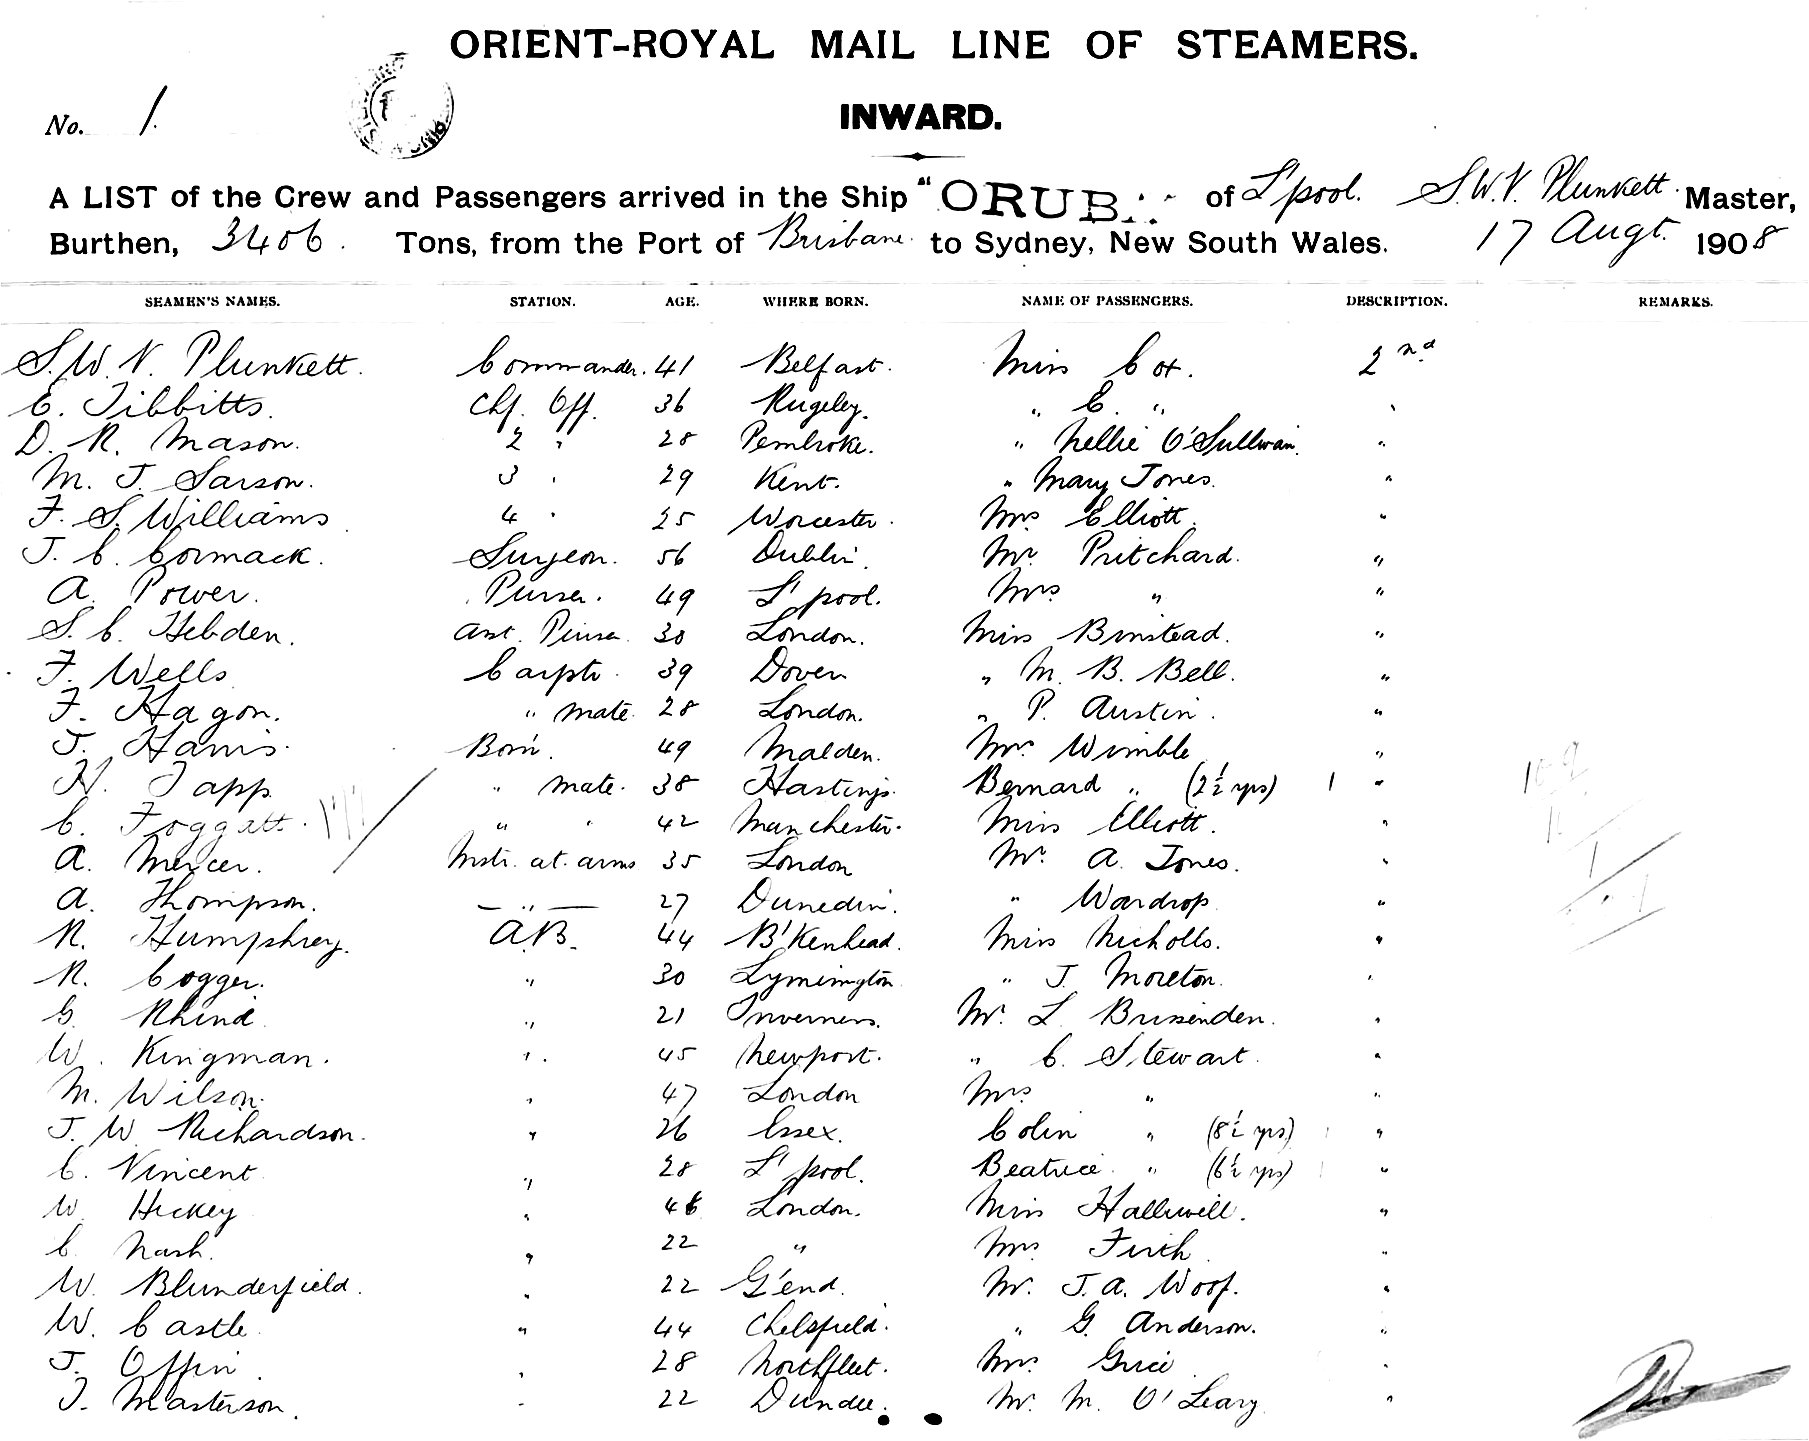 ORIENT-ROYAL MAIL LINE OF STEAMERS.
No. 1.
INWARD.
A LIST of the Crew and Passengers arrived in the Ship "ORUB of L'pool. S.W.V. Plunkett. Master,
Burthen, 3406. Tons, from the Port of Brisbane. to Sydney, New South Wales. 17 Augt. 1908
SEAMEN'S NAMES. STATION. AGE. WHERE BORN. NAME OF PASSENGERS. DESCRIPTION. REMARKS.
S.W.V. Plunkett. Commander. 41 Belfast. Miss Cox. 2nd
E. Tibbitts. Chf. Off. 36 Rugeley. " E. " "
D. R. Mason. 2 " 28 Pembroke. " Nellie O'Sullivan. "
M. J. Sarson. 3 " 29 Kent. " Mary Jones. "
F. S. Williams 4 " 25 Worcester. Mrs Elliott. "
J. C. Cormack. Surgeon. 56 Dublin. Mr. Pritchard. "
A. Power. Purser. 49 L'pool. Mrs " "
S. C. Hebden. Asst. Purser 30 London. Miss Binstead. "
F. Wells Carptr. 39 Dover " M. B. Bell. "
F. Hagon. " mate. 28 London. " P. Austin. "
J. Harris. Bosn. 49 Malden. Mrs Wimble "
H. Tapp " mate. 38 Hastings. Bernard " (2½ yrs) 1 "
C. Foggatt. " " 42 Manchester. Miss Elliott. "
A. Mercer. Mstr. at. arms 35 London Mr. A. Jones. "
A. Thompson. — " — 27 Dunedin. " Wardrop "
R. Humphrey. A.B. 44 B'Kenhead. Miss Nicholls. "
R. Cogger. " 30 Lymington " J. Moreton. "
G. Rhind. " 21 Inverness. Mr. L. Brissenden. "
W. Kingman. " 45 Newport. " C. Stewart. "
M. Wilson. " 47 London Mrs " "
J. W. Richardson. " 26 Essex. Colin " (8½ yrs) "
C. Vincent " 28 L'pool. Beatrice " (6½ yrs) "
W. Hickey " 46 London. Miss Halliwell. "
C. Nash. " 22 " Mrs Firth "
W. Blunderfield. " 22 G'end. Mr. J. A. Woof. "
W. Castle " 44 Chelsfield. " G. Anderson. "
J. Offin " 28 Northfleet. Mrs. Grice "
J. Masterson. " 22 Dundee. Mr. M. O'Leary "